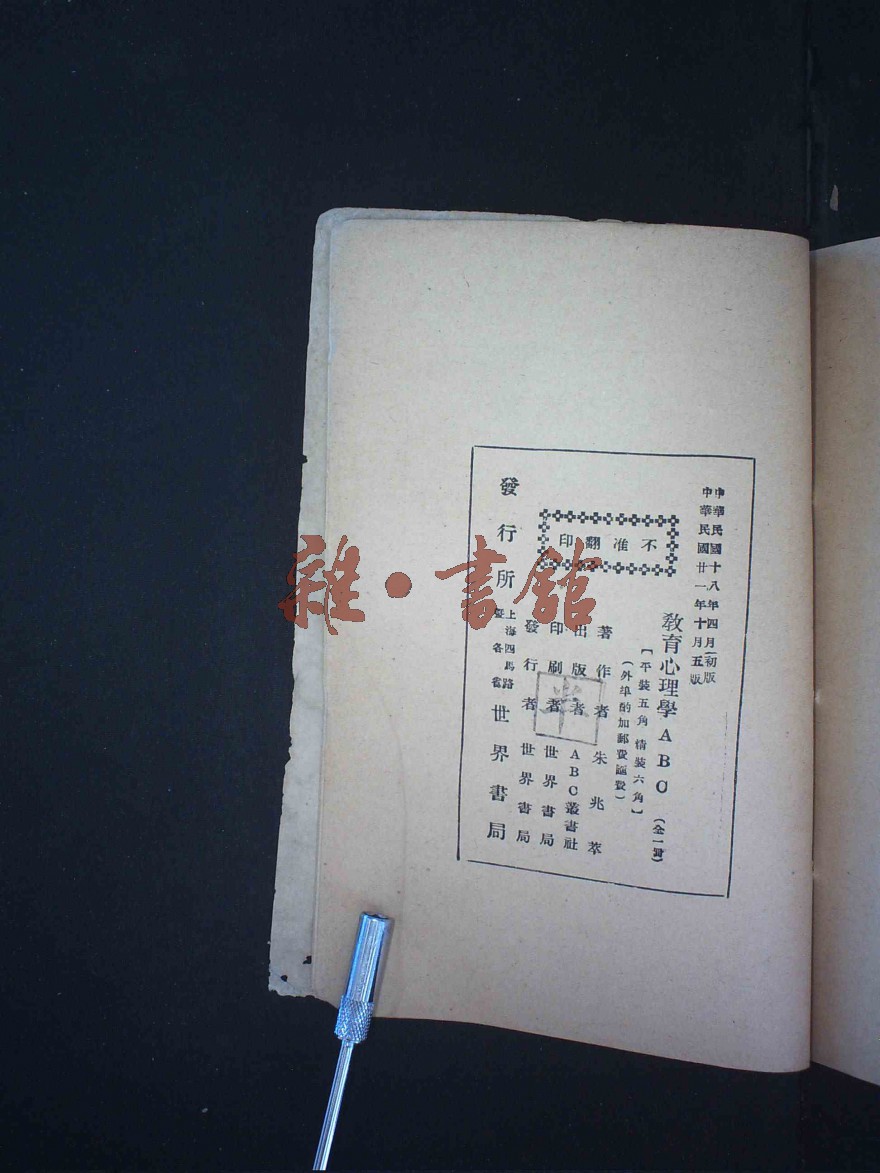 中華民國十八年四月初版
中華民國廿一年十月五版
教育心理學ABC(全一冊)
【平裝五角 精裝六角】
(外埠酌加郵費匯費)
不准翻印
著作者 朱兆萃
出版者 ABC叢書社
印刷者 世界書局
發行者 世界書局
發行所 上海四馬路 暨各省 世界書局
雜·書館